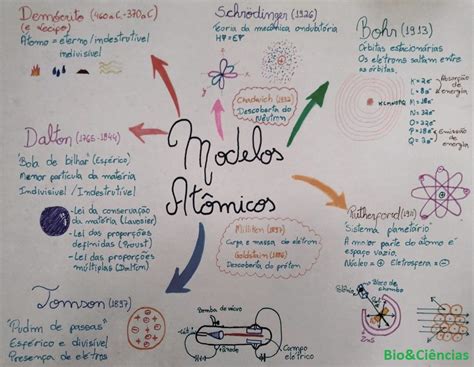 Modelos
Atômicos
Demócrito (460a.C-370a.C)
(e Lecipo)
Átomo = eterno/indestrutível
indivisível
Schrodinger (1926)
Teoria da mecânica ondulatória
Chadwick (1932)
Descoberta do
Nêutron
Bohr (1913)
Órbitas estacionárias
Os elétrons saltam entre
as órbitas.
K = 2e⁻
L = 8e⁻
M = 18e⁻
N = 32e⁻
O = 32e⁻
P = 18e⁻
Q = 8e⁻
Absorção
de energia
Emissão
de energia
Dalton (1766-1844)
"Bola de bilhar" (Esférico)
Menor partícula da matéria
Indivisível / Indestrutível
-Lei da conservação
da matéria (Lavoisier)
-Lei das proporções
definidas (Proust)
-Lei das proporções
múltiplas (Dalton)
Millikan (1897)
Carga e massa do elétron.
Goldstein (1886)
Descoberta do próton
Rutherford (1911)
Sistema planetário
A maior parte do átomo é
espaço vazio.
Núcleo = + Eletrosfera = -
Polônio
Bloco de
chumbo
ZnS
Tomson (1897)
"Pudim de passas"
Esférico e divisível
Presença de elétrons
Bomba de vácuo
Campo
elétrico
Bio&Ciências